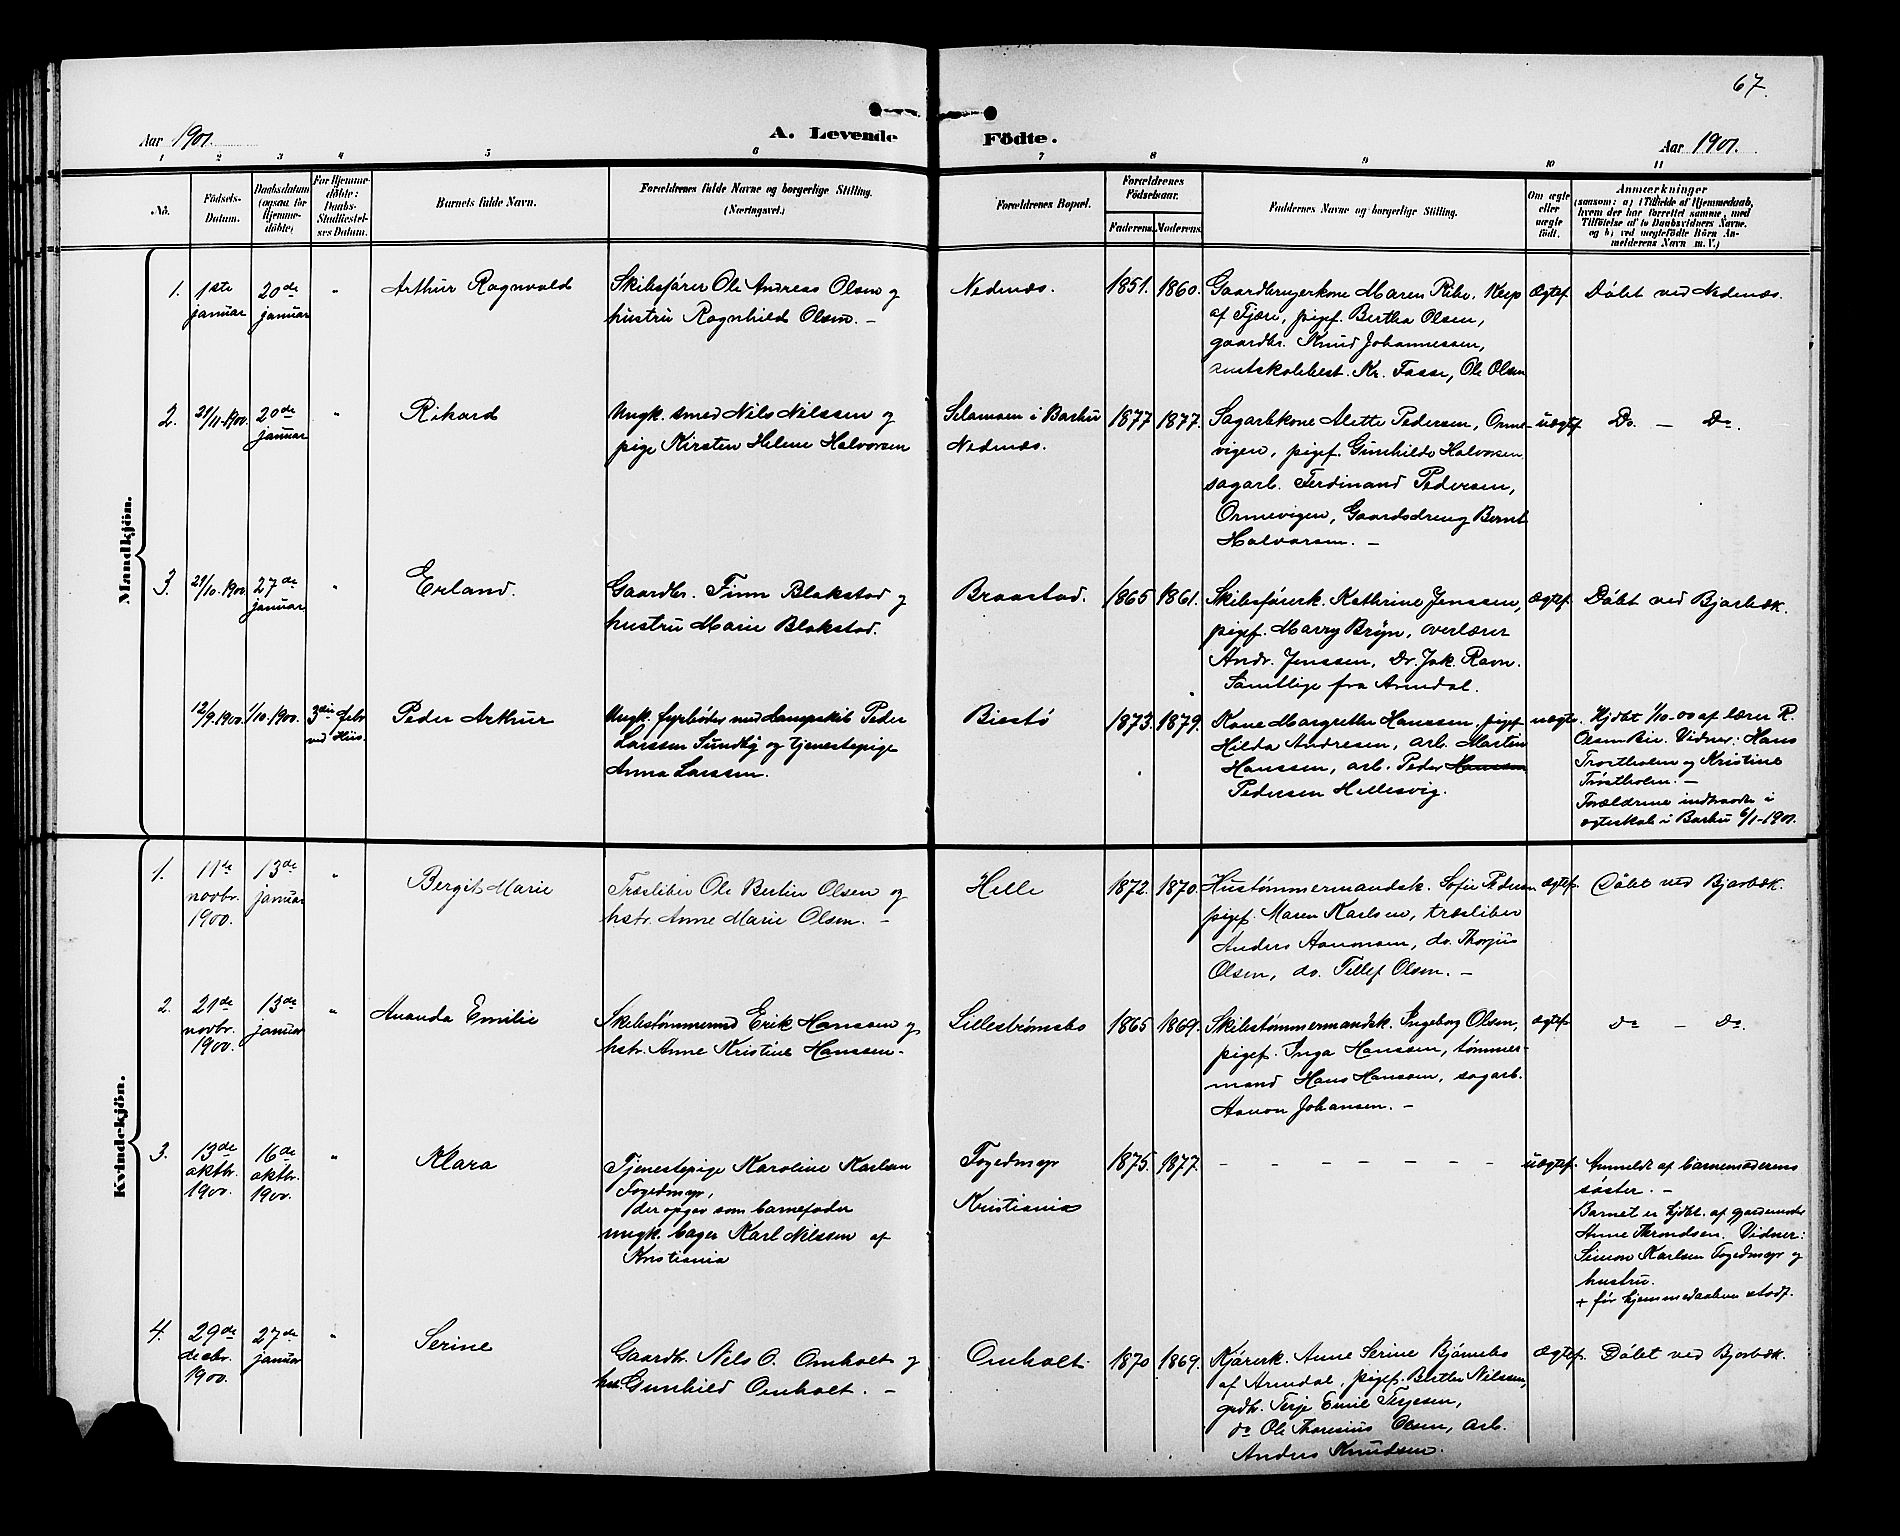 67.
Aar 1901.
A. Levende
Födte.
Aar 1901.
1 2 3 4 5 6 7 8 9 10 11
No.
Födsels-
Datum.
Daabsdatum
(ogsaa for
Hjemme-
döbte)
For Hjemme-
döbte:
Daabs-
Stadfæstel-
ses Datum.
Barnets fulde Navn.
Forældrenes fulde Navne og borgerlige Stilling.
(Næringsvei.)
Forældrenes Bopæl.
Forældrenes
Födselsaar.
Faderens.
Moderens.
Faddernes Navne og borgerlige Stilling.
Om ægte
eller
uægte
födt.
Anmærkninger
(saasom: a) i Tilfælde af Hjemmedaab,
hvem der har forrettet samme, med
Tilföielse af to Daabsvidners Navne.
og b) ved uægtefödte Börn An-
melderens Navn m. V.)
Mandkjön.
1.
1ste
januar
20de
januar
"
Arthur Ragnvald
Skibsfører Ole Andreas Olsen og
hustru Ragnhild Olsen. -
Nedenæs.
1851.
1860.
Gaardbrugerkone Maren Ribe,
af Fjære, pigef. Bertha Olsen,
gaardbr. Knud Johannessen,
amtskolebest. Kr. Fasse, Ole Olsen
Ægtef.
Döbt ved Nedenæs.
2.
21/11-1900.
20de
januar
"
Rikard
Ungk. smed Nils Nilssen og
pige Kirsten Helene Halvorsen
i Barbu
Nedenæs.
1877
1877.
Sagarbkone Alette Pedersen, Orme-
vigen, pigef. Gunhilde Halvorsen
sagarb. Ferdinand Pedersen,
Ormevigen, Gaardsdreng Bernt
Halvorsen. -
uægtef.
Do. - Do.
3.
21/10-1900
27de
januar
"
Erland.
Gaardbr. Finn Blakstad og
hustru Marie Blakstad.
Braastad.
1865
1861.
Skibsførerk. Kathrine Jenssen,
pigef. Marry Bryn, overlærer
Andr. Jenssen, Dr. Jak. Ravn.
Samtlige fra Arendal.
Ægtef.
Döbt ved Bjorbæk.
12/9.1900.
1/10.1900.
3die febr
ved Hiis.
Peder Arthur
Ungk. fyrbøder med dampskib Peder
Larssen Sundby og tjenestepige
Anna Larssen.
Biestø
1873.
1879.
Kone Margrethe Hanssen, pigef
Hilda Andresen, arb. Morten
Hanssen, arb. Peder Hanssen
Pedersen Hellesvig.
uægte.
Hjdbt 1/10-00 af lærer R.
Olsen Bie. Vidner: Hans
Trostholen og Kristine
Trøstholen. -
Forældrene indtraadte i
ægteskab i Barbu 6/1-1901.
Kvindekjön.
1.
11te
novbr.
1900.
13de
januar
"
Bergit Marie
Træsliber Ole Bertin Olsen og
hstr. Anne Marie Olsen. -
Helle
1872.
1870.
Hustømmermandsk. Sofie Pedersen
pigef. Maren Karlsen, træsliber
Anders Aanonsen, do. Thorjus
Olsen, do. Tellef Olsen. -
Ægtef.
Döbt ved Bjorbæk.
2.
21de
novbr.
1900.
13de
januar
"
Ananda Emilie
Skibstømmermd Erik Hanssen og
hstr. Anne Kristine Hanssen.
Lillestrømsbo
1865
1869.
Skibstømmermandsk. Ingeborg Olsen,
pigef. Inga Hanssen, tømmer-
mand Hans Hanssen, sagarb.
Aanon Johansen. -
Ægtef.
do - do.
3.
13de
oktbr.
1900.
16de
oktbr.
1900.
"
Klara
Tjenestepige Karoline Karlsen
Fogedmyr,
der opgav som barnefader
ungk. bager Karl Nilssen af
Kristiania
Fogedmyr
Kristiania
1875.
1877.
- - - - - - - -
uægtef.
Anmeldt af barnemoderens
søster. -
Barnet er hjdbt. af gjordemoder
Anne Throndsen. Vidner:
Simon Karlsen Fogedmyr og
hustru.
+ før hjemmedaaben stadf.
4.
29de
decbr.
1900.
27de
januar
"
Serine
Gaardbr. Nils O. Omholt og
hst. Gunhild Omholt. -
Omholt.
1870
1869.
Kjørerk. Anne Serine Bjørnebo
af Arendal, pigef. Berthe Nilssen,
grdbr. Terje Emil Terjesen,
do Ole Olsen, arb.
Anders Knudsen.
Ægtef.
Döbt ved Bjorbæk.